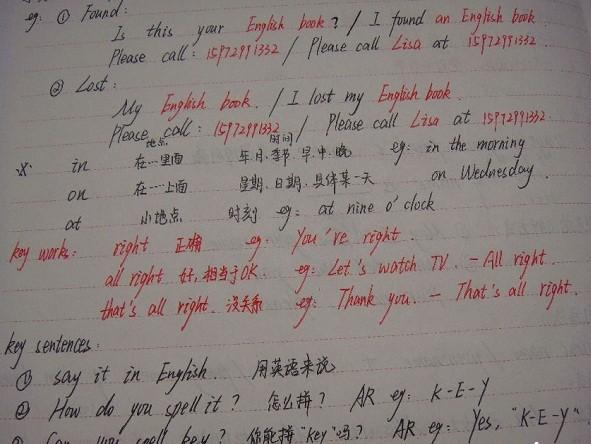 eg: ① Found:
Is this your English book? / I found an English book
Please call: 15972991332 / Please call Lisa at 15972991332.
② Lost:
My English book. / I lost my English book.
Please call: 15972991332 / Please call Lisa at 15972991332.
地点 时间
※ in 在…里面 年.月.季节.早.中.晚 eg: in the morning
on 在…上面 星期.日期.具体某一天 on Wednesday.
at 小地点 时刻 eg: at nine o'clock
key works: right 正确 eg You're right.
all right 好,相当于OK. eg: Let's watch TV. - All right.
that's all right. 没关系 eg: Thank you. - That's all right.
key sentences:
① say it in English. 用英语来说
② How do you spell it? 怎么拼? AR eg: K-E-Y
③ Can you spell key? 你能拼"key"吗? AR eg: Yes, "K-E-Y".